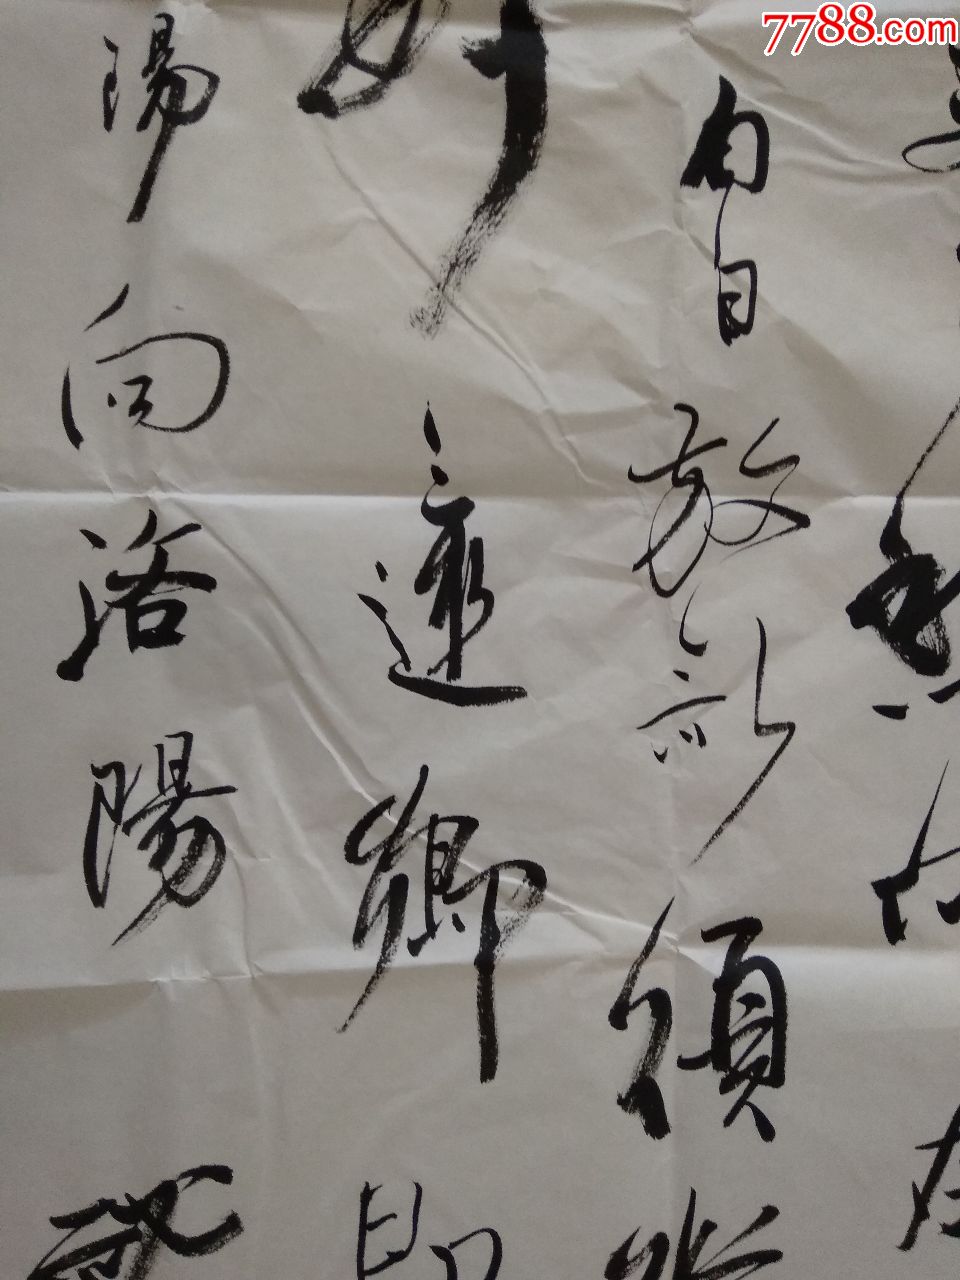 7788.com
愁何在
白日放歌須縱
好還鄉即
陽向洛陽